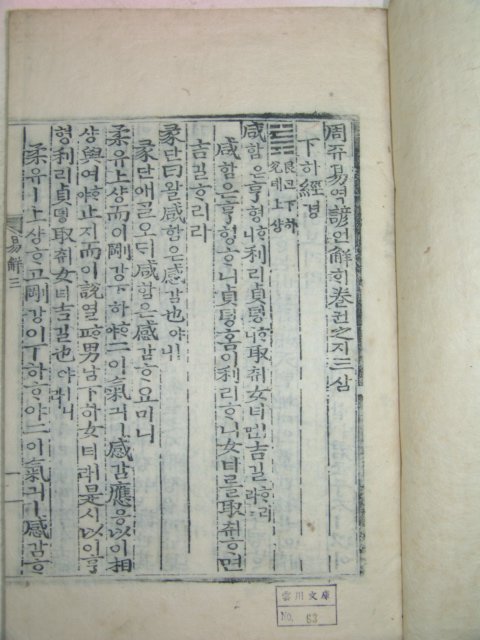 周쥬易역諺언解ᄒᆡ卷권之지三삼
下하經경
艮간下하
兌태上샹
咸함은亨형ᄒᆞ니利리貞뎡ᄒᆞ니取ᄎᆔ女녀ㅣ면吉길ᄒᆞ리라
咸함은亨형ᄒᆞ니貞뎡홈이利리ᄒᆞ니女녀ᄅᆞᆯ取ᄎᆔᄒᆞ면
吉길ᄒᆞ리라
彖단曰왈咸함은感감也야ㅣ니
彖단애ᄀᆞᆯ오ᄃᆡ咸함은感감홈이니
柔유ㅣ上샹而이剛강下하ᄒᆞ야二이氣긔ㅣ感감應응以이相
샹與여ᄒᆞ야止지而이說열ᄒᆞ고男남下하女녀ㅣ라是시以이亨
형利리貞뎡取ᄎᆔ女녀吉길也야ㅣ니라
柔유ㅣ上샹ᄒᆞ고剛강이下하ᄒᆞ야二이氣긔ㅣ感감ᄒᆞ
易解三
雲川文庫
No. 63